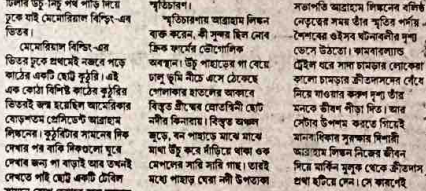 টিলার উচু-নিচু পথ পাড়ি দিয়ে
ঢুকে যাই মেমোরিয়াল বিল্ডিং-এর
ভিতর।
মেমোরিয়াল বিল্ডিং-এর
ভিতর ঢুকে প্রথমেই নজরে পড়ে
কাঠের একটি ছোট কুঠুরি। এই
এক কোঠা বিশিষ্ট কাঠের কুঠুরির
ভিতরই জন্ম হয়েছিল আমেরিকার
ষোড়শতম প্রেসিডেন্ট আব্রাহাম
লিঙ্কনের। কুঠুরিটার সামনের দিক
দেখার পর বাকি দিকগুলো ঘুরে
দেখার জন্য পা বাড়াই আর তখনই
দেখতে পাই ছোট একটি টেবিল
স্মৃতিচারণ।
স্মৃতিচারণায় আব্রাহাম লিঙ্কন
ব্যক্ত করেন, কী সুন্দর ছিল নোব
ক্রিক ফার্মের ভৌগোলিক
অবস্থান। উঁচু পাহাড়ের গা বেয়ে
ঢালু ভূমি নীচে এসে ঠেকেছে
গোলাকার হাতলের আকারে
বিস্তৃত গ্রীষ্মের স্রোতস্বিনী ছোট
নদীর কিনারায়। বিস্তৃত অঞ্চল
জুড়ে, বন পাহাড়ে মাঝে মাঝে
মাথা উঁচু করে দাঁড়িয়ে থাকা ওক
মেপলের সারি সারি গাছ। তারই
মধ্যে পাহাড় ঘেরা নদী উপত্যকা
সভাপতি আব্রাহাম লিঙ্কনের বলিষ্ঠ
নেতৃত্বের সময় তাঁর স্মৃতির পর্দায়
শৈশবের ওইসব ঘটনাবলীর দৃশ্য
ভেসে উঠতো। কামবারল্যান্ড
ট্রেইল ধরে সাদা চামড়ার লোকেরা
কালো চামড়ার ক্রীতদাসদের বেঁধে
নিয়ে যাওয়ার করুণ দৃশ্য তাঁর
মনকে ভীষণ পীড়া দিত। আর
সেটার উপশম করতে গিয়েই
মানবাধিকার সুরক্ষার দিশারী
আব্রাহাম লিঙ্কন নিজের জীবন
দিয়ে মার্কিন মুলুক থেকে ক্রীতদাস
প্রথা হটিয়ে দেন। সে কারণেই